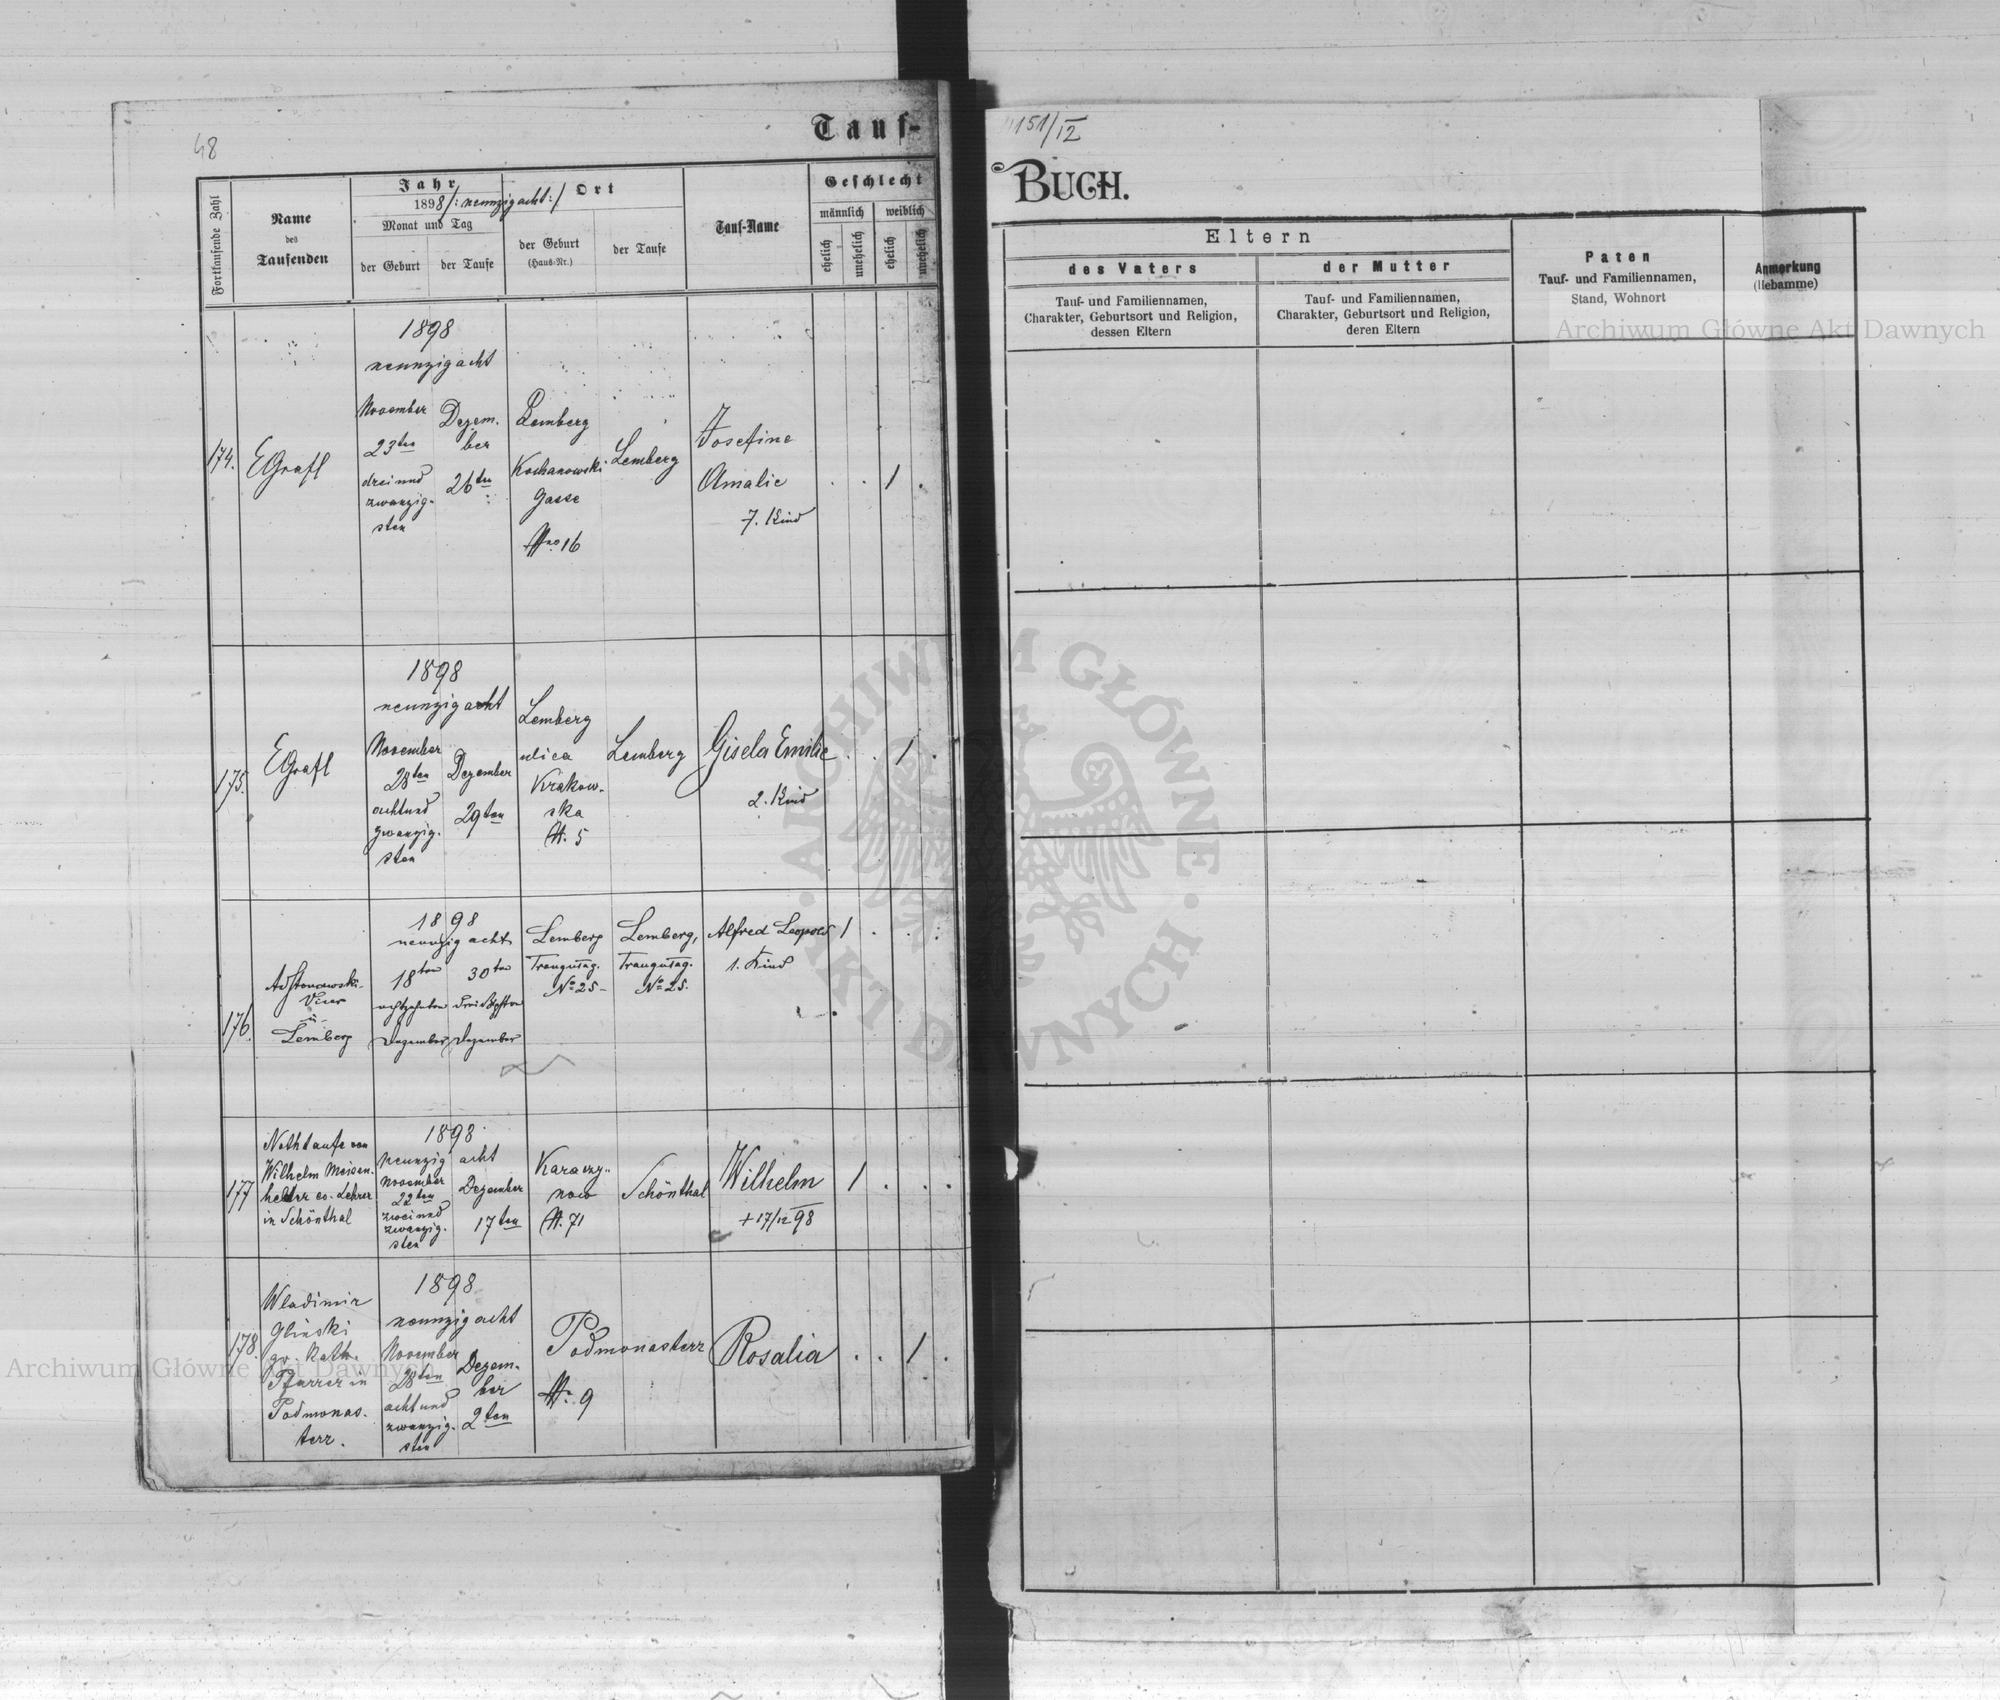 48
Tauf-
Fortlaufende Zahl
Name
des
Taufenden
Jahr
1898 /: neunzigacht :/
Monat und Tag
der Geburt
der Taufe
Ort
der Geburt
(Haus-Nr.)
der Taufe
Tauf-Name
Geschlecht
männlich
weiblich
ehelich
unehelich
ehelich
unehelich
174.
EGrafl
1898
neunzigacht
November
23ten
drei und
zwanzig-
sten
Dezem-
ber
26ten
Lemberg
Kochanowski
Gasse
Nro 16
Lemberg
Josefine
Amalie
7. Kind
1
175.
EGrafl
1898
neunzigacht
November
28ten
achtund
zwanzig-
sten
Dezember
29ten
Lemberg
ulica
Krakow-
ska
N. 5
Lemberg
Gisela Emilie
2. Kind
1
176.
Vicar
in
Lemberg
1898
neunzig acht
18ten
achtzehnten
Dezember
30ten
dreißigsten
Dezember
Lemberg
Nº 25-
Lemberg,
Nº 25.
Alfred Leopold
1. Kind
1
177
Nothtaufe von
Wilhelm Meisen-
helter ev. Lehrer
in Schönthal
1898
neunzig acht
November
22ten
zwei und
zwanzig-
sten
Dezember
17ten
Karaczy-
now
N. 71
Schönthal
Wilhelm
+ 17/12 98
1
178.
Wladimir
Glinski
gr. kath.
Pfarrer in
Podmonas-
terz.
1898
neunzigacht
November
28ten
achtund
zwanzig-
sten
Dezem-
ber
2ten
Podmonasterz
Nr. 9
Rosalia
1
151/IX
BUCH.
Eltern
des Vaters
Tauf- und Familiennamen,
Charakter, Geburtsort und Religion,
dessen Eltern
der Mutter
Tauf- und Familiennamen,
Charakter, Geburtsort und Religion,
deren Eltern
Paten
Tauf- und Familiennamen,
Stand, Wohnort
Anmerkung
(Hebamme)
Archiwum Główne Akt Dawnych
ARCHIWUM GŁÓWNE · AKT DAWNYCH ·
Archiwum Główne Akt Dawnych